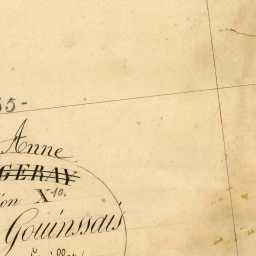 55-
Anne
GERAY
ion X 10.
Gouinssais